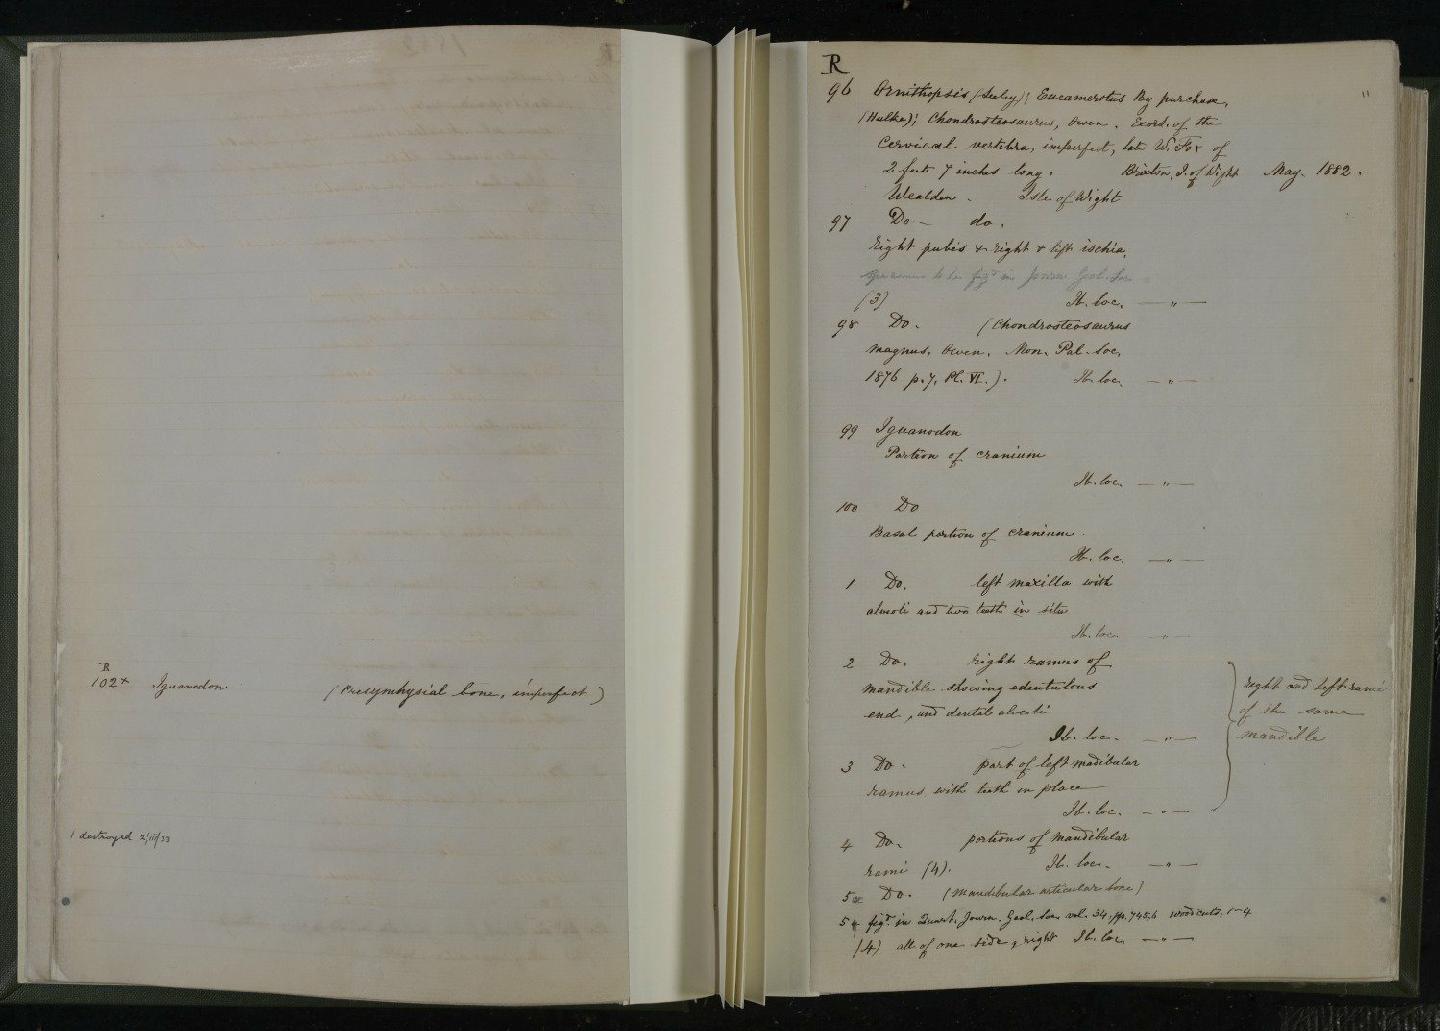 R
102* Iguanodon. (Presymphysial bone, imperfect)
1 destroyed 2/iii/33
R
11
96 Ornithopsis (Seeley); Eucamerotus By purchase,
(Hulke); Chondrosteosaurus, Owen. Exors. of the
Cervical vertebra, imperfect, late W. Fox of
2 feet 7 inches long. Brixton, I. of Wight May. 1882.
Wealden. Isle of Wight
97 Do — do.
right pubis & right & left ischia,
specimens to be figd in Journ. Geol. Soc
(3) Ib. loc. — " —
98 Do. (Chondrosteosaurus
magnus, Owen. Mon. Pal. Soc.
1876 p. 7, Pl. VI.). Ib. loc. — " —
99 Iguanodon
Portion of cranium
Ib. loc. — " —
100 Do
Basal portion of cranium.
Ib. loc. — " —
1 Do. left maxilla with
alveoli and two teeth in situ
Ib. loc. — " —
2 Do. right ramus of
mandible showing edentulous right and left rami
end, and dental alveoli of the same
Ib. loc. — " — mandible
3 Do. part of left madibular
ramus, with teeth in place
Ib. loc. — " —
4 Do. portions of mandibular
rami (4). Ib. loc. — " —
5 Do. (mandibular articular bone)
5 figd. in Quart. Journ. Geol. Soc. vol. 34, pp. 745.6 woodcuts. 1-4
(4) all of one side, right Ib. loc. — " —